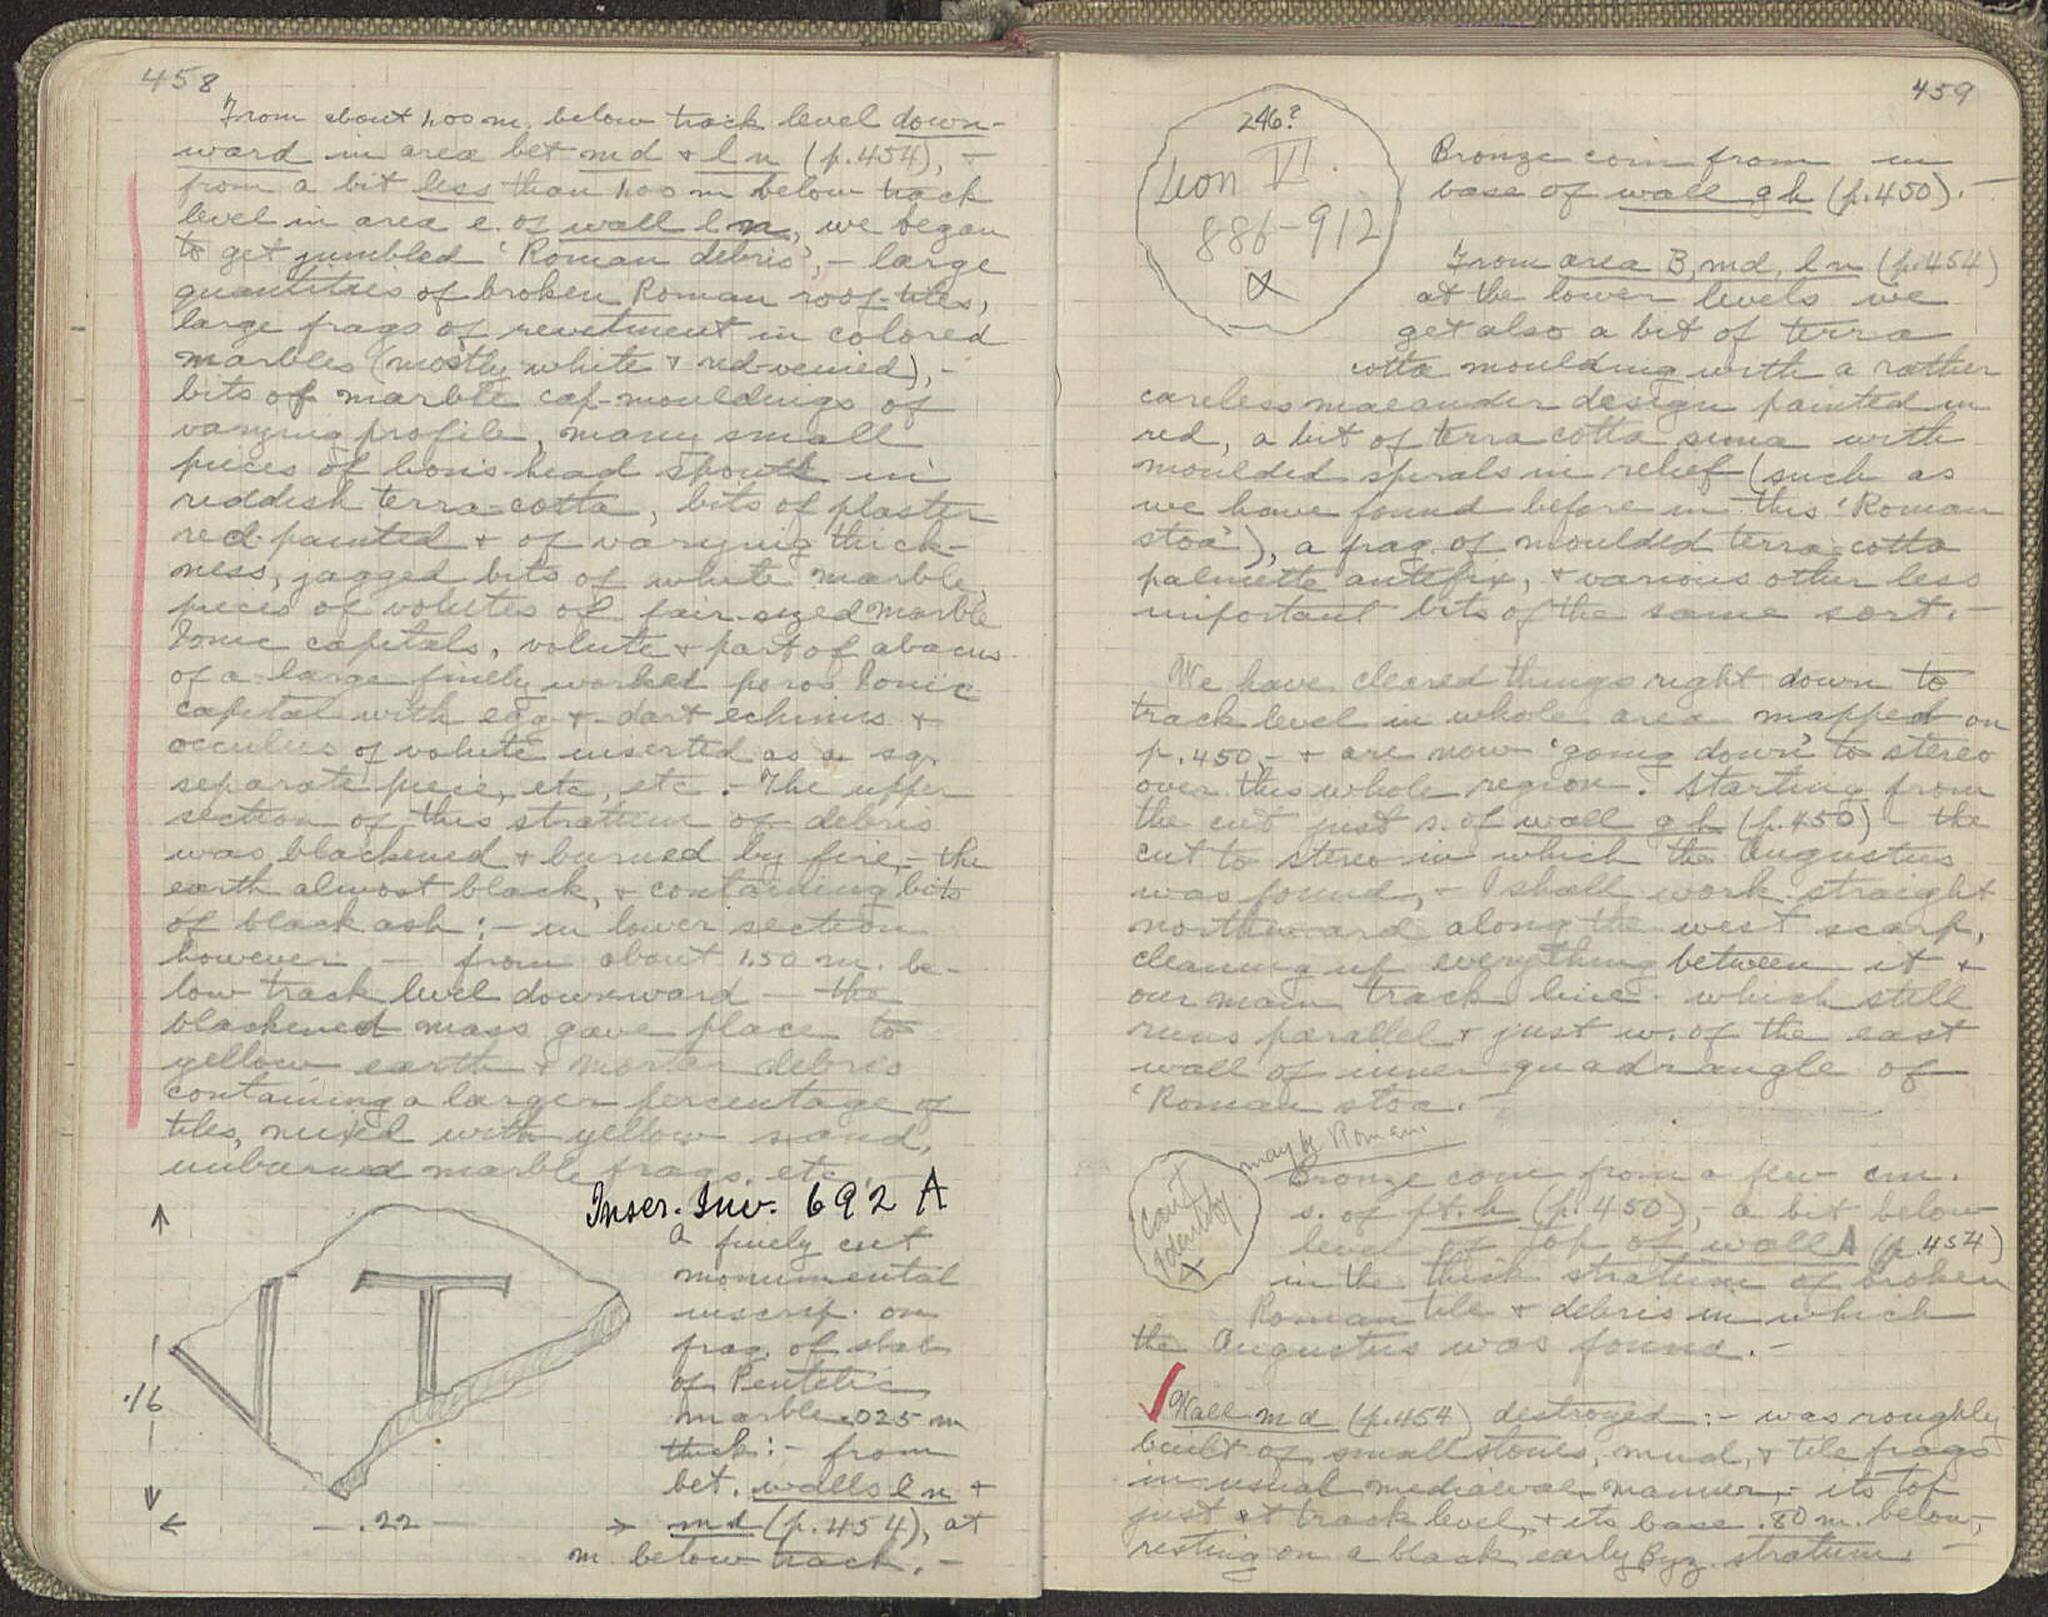 458
From about 1.00 m. below track level down-
ward in area bet md + l n (p.454), +
from a bit less than 1.00 m below track
level in area e. of wall l n, we began
to get jumbled 'Roman debris', – large
quantities of broken Roman roof-tiles,
large frags of revetment in colored
marbles (mostly white + red-veined), –
bits of marble cap-mouldings of
varying profile, many small
pieces of lion's-head spouts in
reddish terra-cotta, bits of plaster
red-painted + of varying thick-
ness, jagged bits of white marble,
pieces of volutes of fair-sized marble
Ionic capitals, volute + part of abacus
of a large finely worked poros Ionic
capital with egg + dart echinus +
occulus of volute inserted as a sqr.
separate piece, etc, etc. – The upper
section of this stratum of debris
was blackened + burned by fire, – the
earth almost black, + containing bits
of black ash : – in lower section
however – from about 1.50 m. be-
low track level downward – the
blackened mass gave place to
yellow earth + mortar debris
containing a larger percentage of
tiles, mixed with yellow sand,
unburned marble frags. etc.
Inscr. Inv. 692 A
A finely cut
monumental
inscrip. on
frag. of slab
of Pentelic
marble .025 m
thick : – from
bet. walls l n +
md (p.454), at
m below track. –
VT
.16
.22
459
246?
Leon VI.
886–912
X
Bronze coin from in
base of wall gh (p.450). –
From area B, md, l n (p.454)
at the lower levels we
get also a bit of terra
cotta moulding with a rather
careless maeander design painted in
red, a bit of terra cotta sima with
moulded spirals in relief (such as
we have found before in this 'Roman
stoa'), a frag. of moulded terra-cotta
palmette antefix, + various other less
important bits of the same sort. –
We have cleared things right down to
track level in whole area mapped on
p.450, – + are now 'going down' to stereo
over this whole region. Starting from
the cut just s. of wall gh (p.450) – the
cut to stereo in which the Augustus
was found, – I shall work straight
northward along the west scarp,
cleaning up everything between it +
our main track line which still
runs parallel + just w. of the east
wall of inner quadrangle of
'Roman stoa. –
may be Roman.
Can't
identify.
X
Bronze coin from a few cm.
s. of pt. h (p.450), – a bit below
level of top of wall A (p.454)
in the thick stratum of broken
Roman tile + debris in which
the Augustus was found. –
✓ Wall md (p.454) destroyed : – was roughly
built of small stones, mud, + tile frags
in usual mediaeval manner, – its top
just at track level, + its base .80 m. below,
resting on a black early Byz. stratum. –